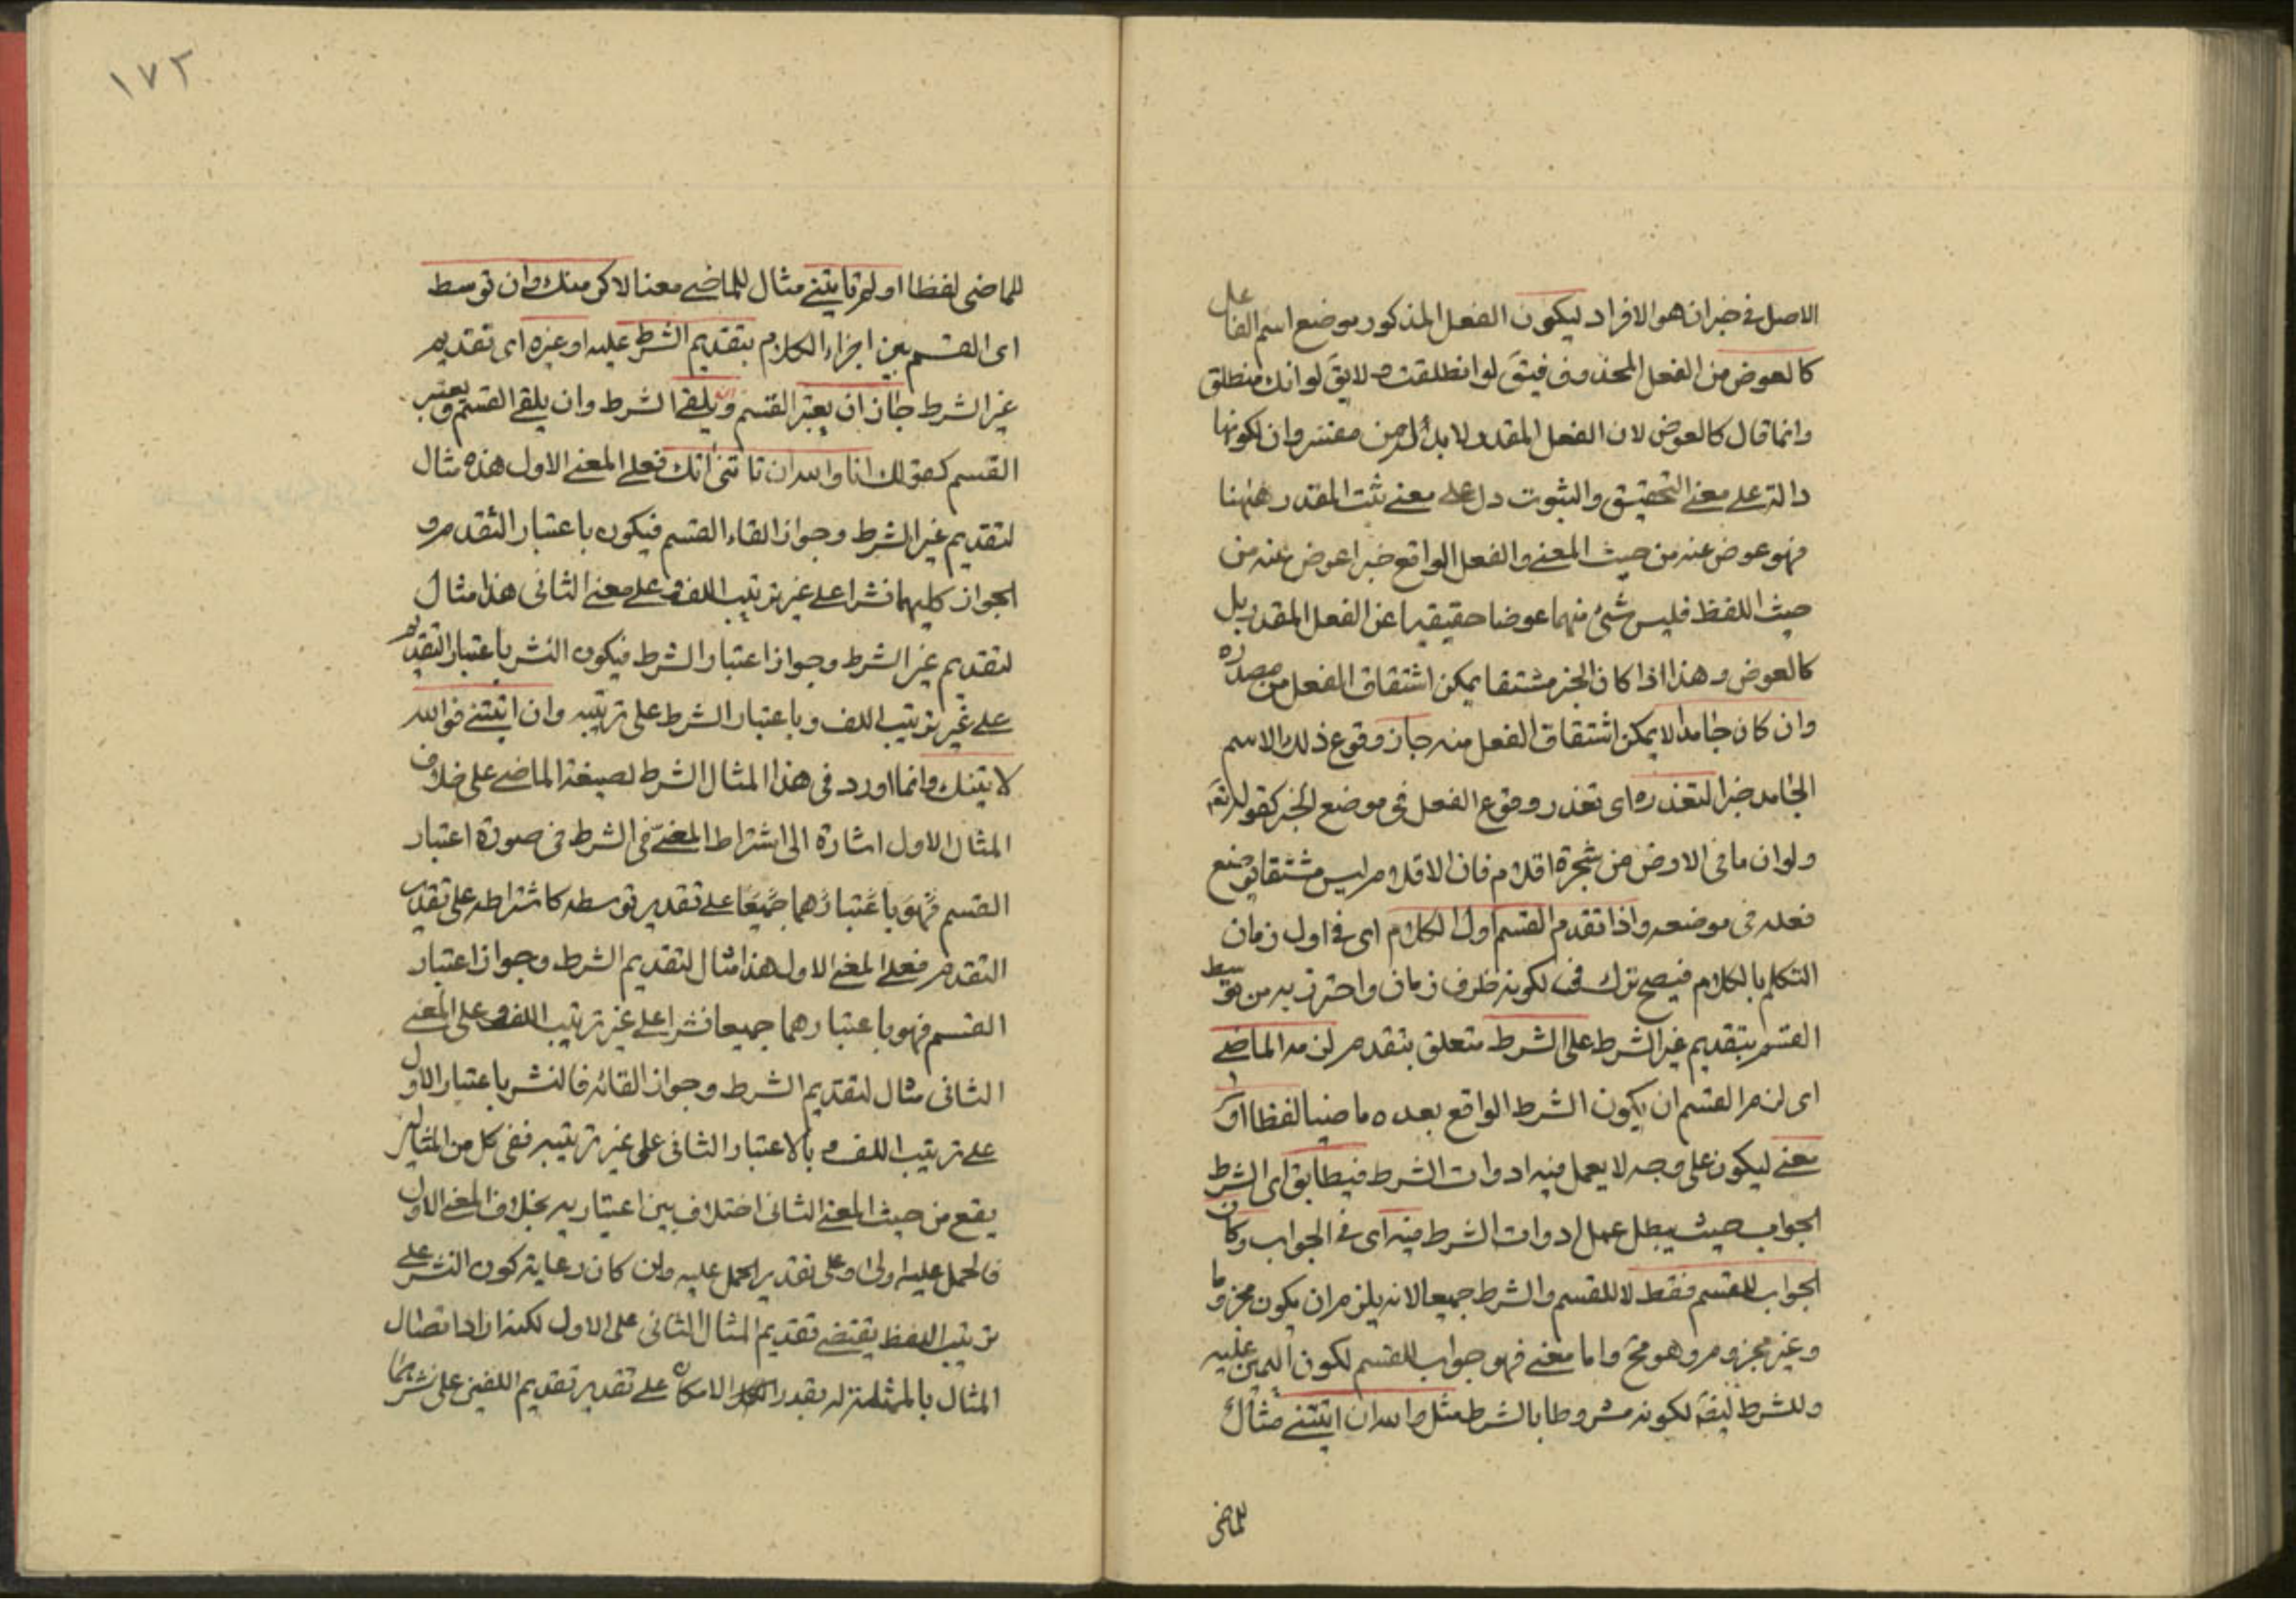 الاصل فى خبر ان هو الافراد ليكون الفعل المذكور موضع اسم الفاعل
كالعوض من الفعل المحذوف فيقَ لو انطلقت ولا يقَ لو انك منطلق
وانما قال كالعوض لان الفعل المقدر لا بد له من مفسر وان لكونها
دالة على معنى التحقيق والثبوت دل على معنى ثبت المقدر ههنا
فهو عوض عنه من حيث المعنى والفعل الواقع خبرا عوض عنه من
حيث اللفظ فليس شئ منهما عوضا حقيقيا عن الفعل المقدر بل
كالعوض وهذا اذا كان الخبر مشتقا يمكن اشتقاق الفعل من مصدره
وان كان جامدا لا يمكن اشتقاق الفعل منه جاز وقوع ذلك الاسم
الجامد خبرا لتعذره اى تعذر وقوع الفعل فى موضع الخبر كقوله تعَ
ولو ان ما فى الارض من شجرة اقلام فان الاقلام ليس مشتقا يوضع
فعله فى موضعه واذا تقدم القسم اول الكلام اى فى اول زمان
التكلم بالكلام فيصح ترك فى لكونه ظرف زمان واحترز به من توسط
القسم بتقديم غير الشرط على الشرط متعلق بتقدم لزمه الماضى
اى لزم القسم ان يكون الشرط الواقع بعده ماضيا لفظا او
معنى ليكون على وجه لا يعمل فيه ادوات الشرط فيطابق اى الشرط
الجواب حيث يبطل عمل ادوات الشرط فيه اى فى الجواب وكان
الجواب للقسم فقط لا للقسم والشرط جميعا لانه يلزم ان يكون مجزوما
وغير مجزوم وهو محَ واما معنى فهو جواب للقسم لكون اليمين عليه
وللشرط ايضَ لكونه مشروطا بالشرط مثل والله ان اتيتنى مثال
للماضى
١٧٢
للماضى لفظا او لم تاتنى مثال للماضى معنا لاكرمنك وان توسط
اى القسم بين اجزاء الكلام بتقديم الشرط عليه او غيره اى تقديم
غير الشرط جاز ان يعتبر القسم ويلغى الشرط وان يلغى القسم ويعتبر
القسم كقولك انا والله ان تاتنى اتك فعلى المعنى الاول هذه مثال
لتقديم غير الشرط وجواز الغاء القسم فيكون باعتبار التقدم و
الجواز كليهما نشرا على غير ترتيب اللف وعلى معنى الثانى هذا مثال
لتقديم غير الشرط وجواز اعتبار الشرط فيكون النشر باعتبار التقديم
على غير ترتيب اللف وباعتبار الشرط على ترتيبه وان اتيتنى فوالله
لاتينك وانما اورد فى هذا المثال الشرط لصيغة الماضى على خلاف
المثال الاول اشارة الى اشتراط المضىّ فى الشرط فى صورة اعتبار
القسم فهو باعتبارهما جميعا على تقدير توسطه كاشتراطه على تقدير
التقدم فعلى المعنى الاول هذا مثال لتقديم الشرط وجواز اعتبار
القسم فهو باعتبارهما جميعا نشرا على غير ترتيب اللف وعلى المعنى
الثانى مثال لتقديم الشرط وجواز الغائه فالنشر باعتبار الاول
على ترتيب اللف و بالاعتبار الثانى على غير ترتيبه ففى كل من المثالين
يقع من حيث المعنى الثانى اختلاف بين اعتباريه بخلاف المعنى الاول
فالحمل عليه اولى وعلى تقدير الحمل عليه وان كان رعاية كون النشر على
ترتيب اللفظ يقتضى تقديم المثال الثانى على الاول لكنه اراد اتصال
المثال بالممثل له بقدر الامكان على تقدير تقديم اللفين على نشرهما